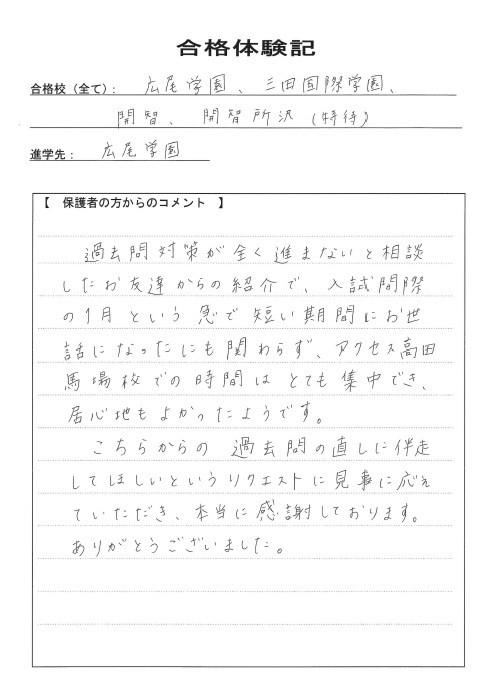 合格体験記
合格校（全て）： 広尾学園、三田国際学園、
開智、開智所沢（特待）
進学先： 広尾学園
【 保護者の方からのコメント 】
過去問対策が全く進まないと相談
したお友達からの紹介で、入試間際
の1月という急で短い期間にお世
話になったにも関わらず、アクセス高田
馬場校での時間はとても集中でき、
居心地もよかったようです。
こちらからの過去問の直しに伴走
してほしいというリクエストに見事に応え
ていただき、本当に感謝しております。
ありがとうございました。